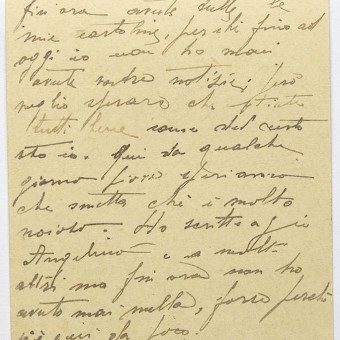 fin ora avute tutte le
mie cartoline, perchè fino ad
oggi io non ho mai
avute vostre notizie, però
voglio sperare che state
tutti bene come del resto
sto io. Qui da qualche
giorno piove speriamo
che smetta chè è molto
noioso. Ho scritto a zio
Angelino e a molti
altri ma fin ora non ho
avuto mai nulla, forse perchè
è qui da poco.